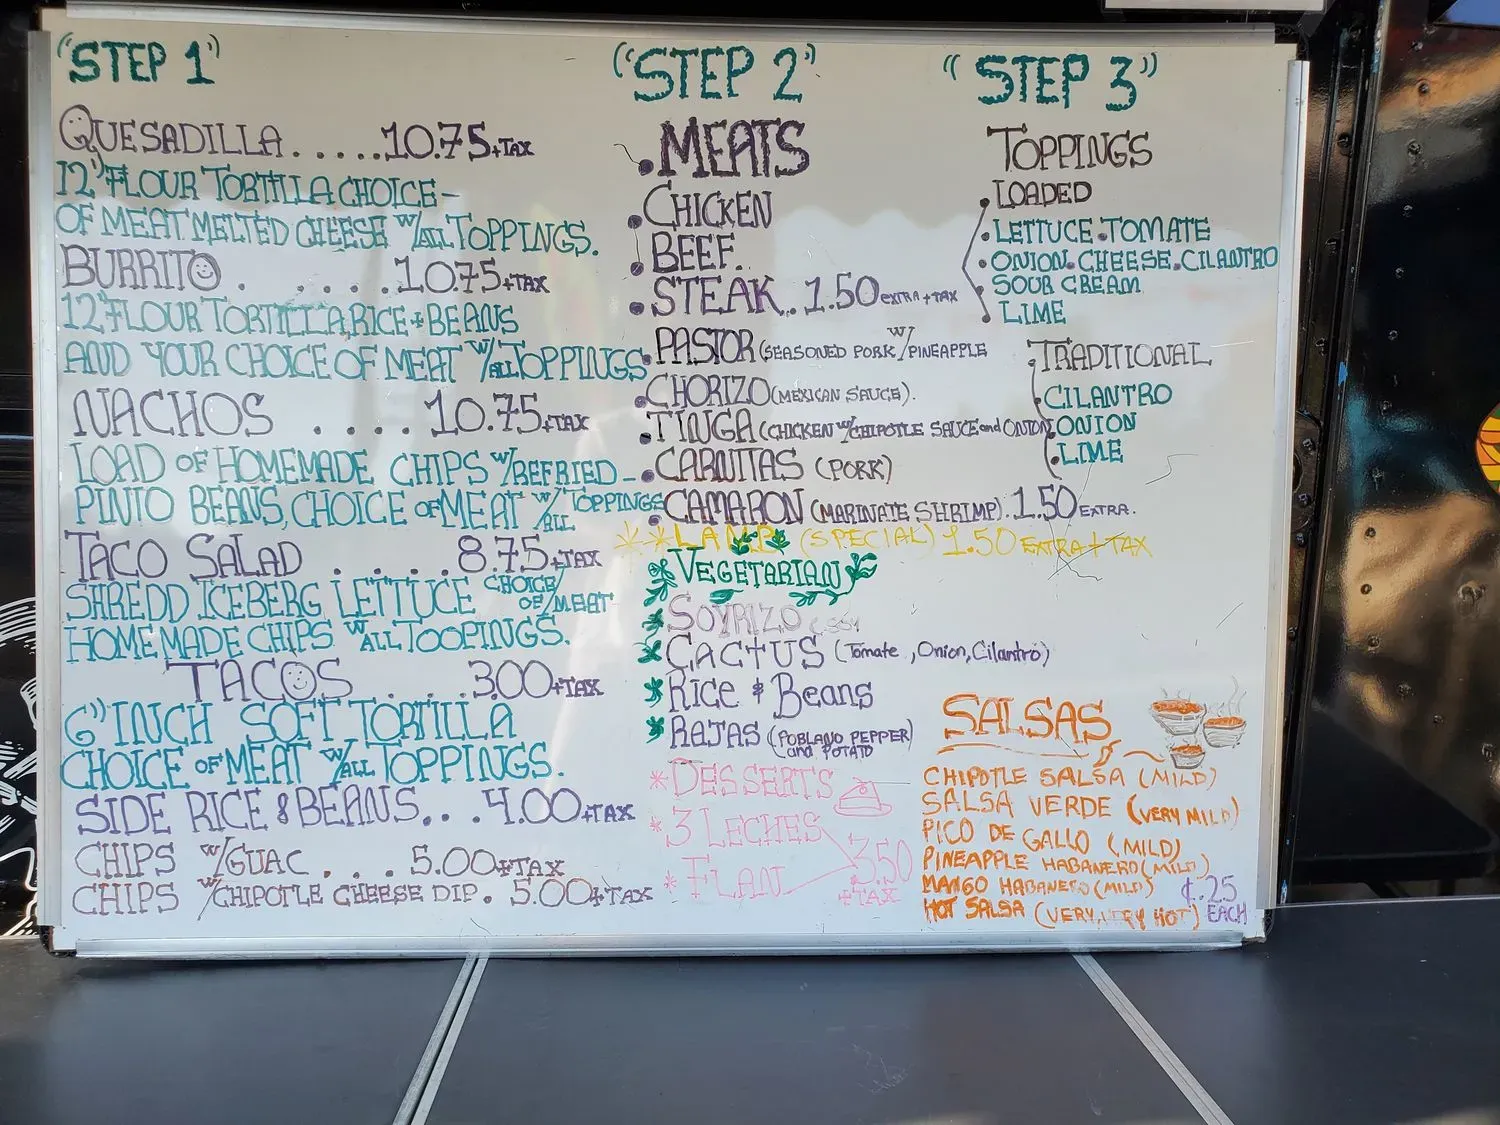 "STEP 1"
QUESADILLA.....10.75+TAX
12" FLOUR TORTILLA CHOICE-
OF MEAT MELTED CHEESE W/ALL TOPPINGS.
BURRITO . . . . . 10.75+TAX
12" FLOUR TORTILLA, RICE + BEANS
AND YOUR CHOICE OF MEAT W/ALL TOPPINGS
NACHOS . . . . 10.75+TAX
LOAD OF HOMEMADE CHIPS W/REFRIED-
PINTO BEANS, CHOICE OF MEAT W/ALL TOPPINGS
TACO SALAD . . . . . 8.75+TAX
SHREDD ICEBERG LETTUCE CHOICE OF/MEAT
HOMEMADE CHIPS W/ALL TOOPINGS.
TACOS . . . . 3.00+TAX
6" INCH SOFT TORTILLA
CHOICE OF MEAT W/ALL TOPPINGS.
SIDE RICE & BEANS... 4.00+TAX
CHIPS W/GUAC . . . 5.00+TAX
CHIPS W/CHIPOTLE CHEESE DIP. 5.00+TAX
"STEP 2"
MEATS
CHICKEN
BEEF.
STEAK.. 1.50 EXTRA+TAX
PASTOR (SEASONED PORK W/PINEAPPLE
CHORIZO (MEXICAN SAUCE).
TINGA (CHICKEN W/CHIPOTLE SAUCE and ONION
CARNITAS (PORK)
CAMARON (MARINATE SHRIMP). 1.50 EXTRA.
**LAMB (SPECIAL) 1.50 EXTRA+TAX
VEGETARIAN
SOYRIZO
CACTUS (Tomate, Onion, Cilantro)
Rice & Beans
RAJAS (POBLANO PEPPER) and POTATO
*DESSERT'S
*3 LECHES
*FLAN
3.50
+TAX
"STEP 3"
TOPPINGS
LOADED
LETTUCE.TOMATE
ONION.CHEESE.CILANTRO
SOUR CREAM
LIME
TRADITIONAL
CILANTRO
ONION
LIME
SALSAS
CHIPOTLE SALSA (MILD)
SALSA VERDE (VERY MILD)
PICO DE GALLO (MILD)
PINEAPPLE HABANERO (MILD)
MANGO HABANERO (MILD)
HOT SALSA (VERY, VERY HOT)
¢.25
EACH